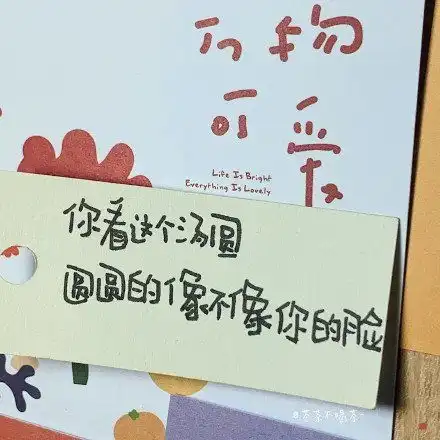 万物
可爱
Life Is Bright
Everything Is Lovely
你看这个汤圆
圆圆的像不像你的脸